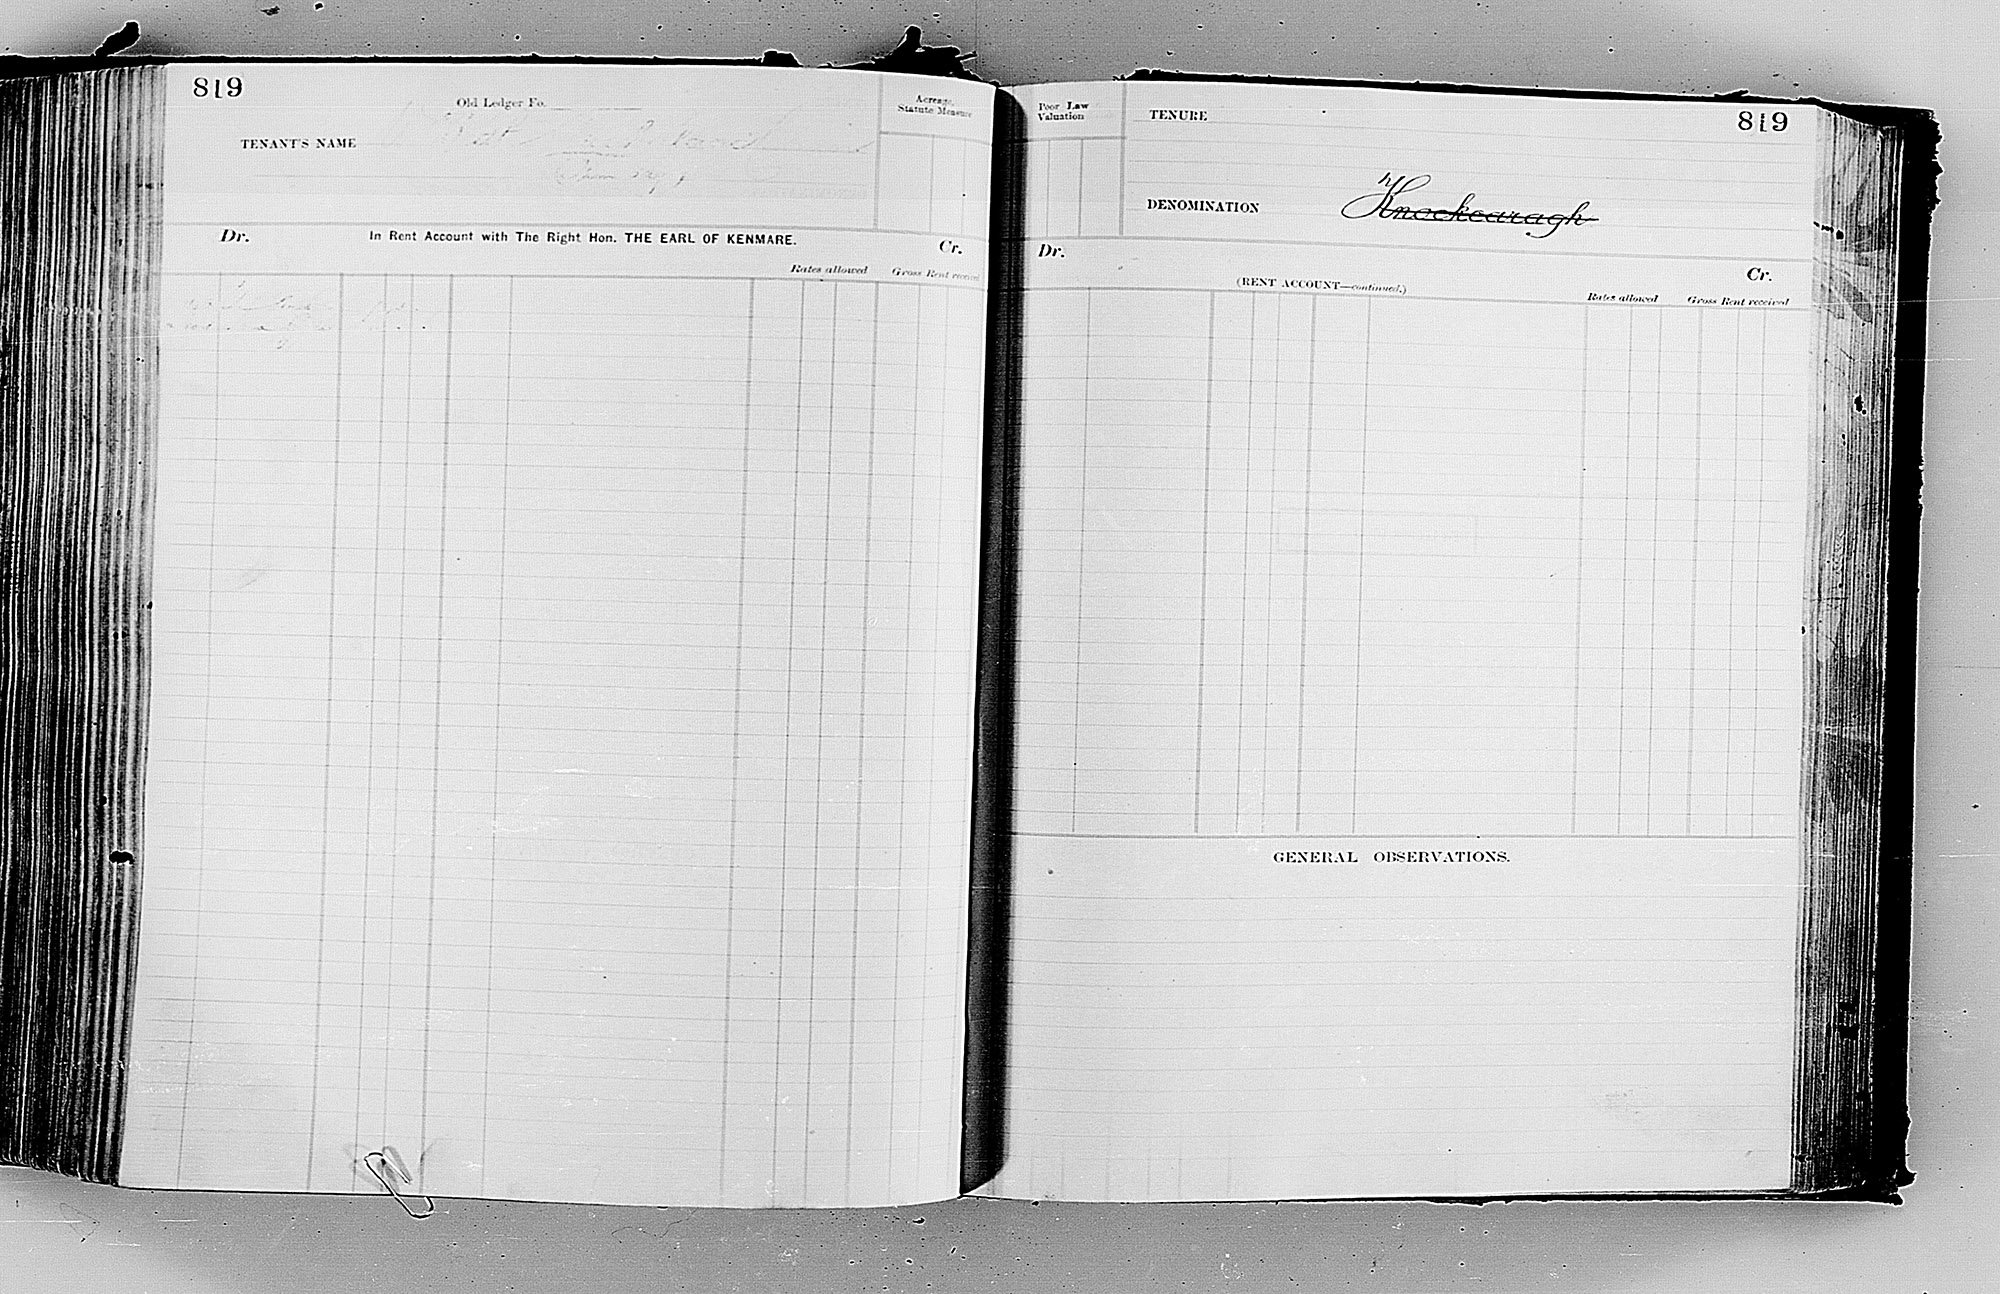 819
Old Ledger Fo.
TENANT'S NAME
Acreage,
Statute Measure
Dr.
In Rent Account with The Right Hon. THE EARL OF KENMARE.
Cr.
Rates allowed
Gross Rent received
Poor Law
Valuation
TENURE
819
DENOMINATION
Knockearagh
Dr.
Cr.
(RENT ACCOUNT—continued.)
Rates allowed
Gross Rent received
GENERAL OBSERVATIONS.